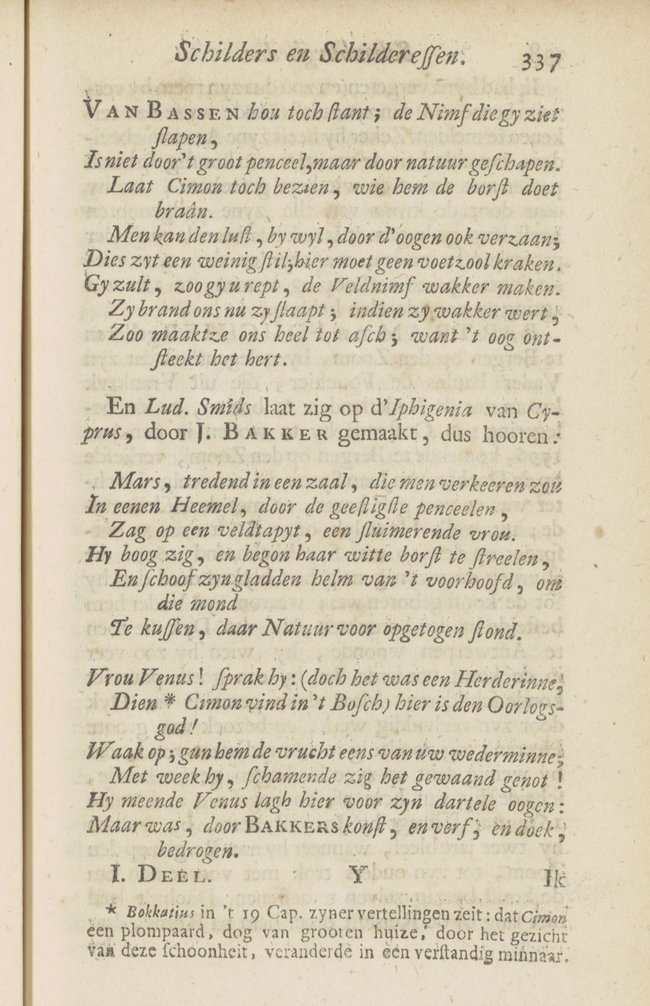 Schilders en Schilderessen. 337
VAN BASSEN hou toch stant; de Nimf die gy ziet
slapen,
Is niet door 't groot penceel, maar door natuur geschapen.
Laat Cimon toch bezien, wie hem de borst doet
braân.
Men kan den lust, by wyl, door d'oogen ook verzaan;
Dies zyt een weinig stil; hier moet geen voetzool kraken.
Gy zult, zoo gy u rept, de Veldnimf wakker maken.
Zy brand ons nu zy slaapt; indien zy wakker wert,
Zoo maaktze ons heel tot asch; want 't oog ont-
steekt het hert.
En Lud. Smids laat zig op d'Iphigenia van Cy-
prus, door J. BAKKER gemaakt, dus hooren:
Mars, tredend in een zaal, die men verkeeren zou
In eenen Heemel, door de geestigste penceelen,
Zag op een veldtapyt, een sluimerende vrou.
Hy boog zig, en begon haar witte borst te streelen,
En schoof zyn gladden helm van 't voorhoofd, om
die mond
Te kussen, daar Natuur voor opgetogen stond.
Vrou Venus! sprak hy: (doch het was een Herderinne,
Dien * Cimon vind in 't Bosch) hier is den Oorlogs-
god!
Waak op; gun hem de vrucht eens van uw wederminne;
Met week hy, schamende zig het gewaand genot!
Hy meende Venus lagh hier voor zyn dartele oogen:
Maar was, door BAKKERS konst, en verf, en doek,
bedrogen.
I. DEEL. Y Ik
* Bokkatius in 't 19 Cap. zyner vertellingen zeit: dat Cimon
een plompaard, dog van grooten huize, door het gezicht
van deze schoonheit, veranderde in een verstandig minnaar.